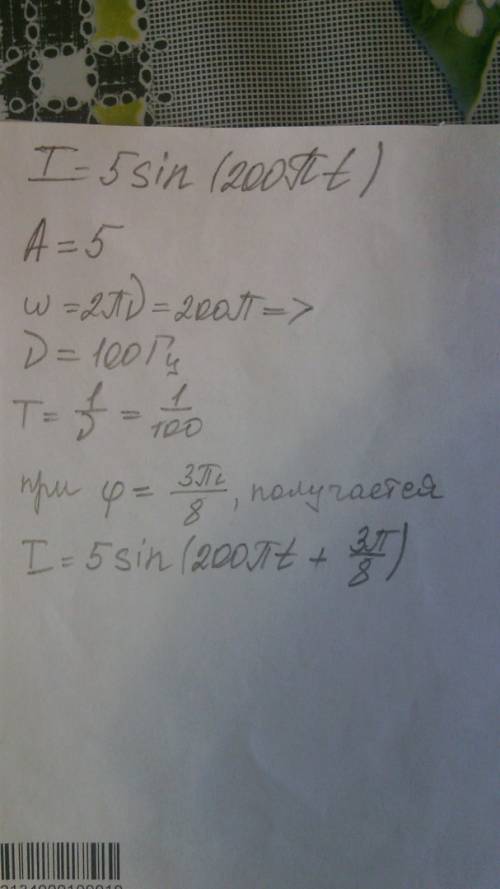 I = 5 sin (200πt)
A = 5
ω = 2πν = 200π =>
ν = 100 Гц
T = 1/ν = 1/100
при φ = 3π/8, получается
I = 5 sin (200πt + 3π/8)